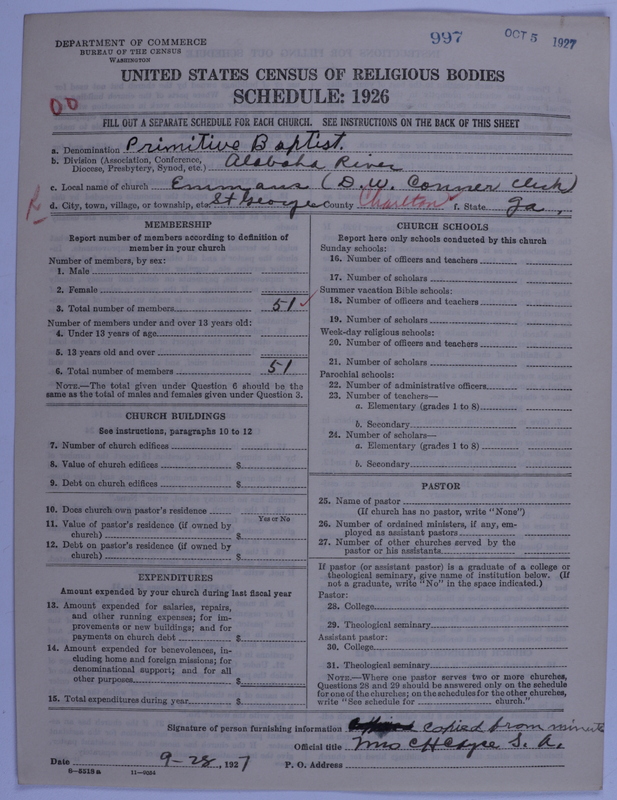 997 OCT 5 1927
DEPARTMENT OF COMMERCE
BUREAU OF THE CENSUS
WASHINGTON
UNITED STATES CENSUS OF RELIGIOUS BODIES
SCHEDULE: 1926
00
FILL OUT A SEPARATE SCHEDULE FOR EACH CHURCH. SEE INSTRUCTIONS ON THE BACK OF THIS SHEET
a. Denomination Primitive Baptist.
b. Division (Association, Conference, Diocese, Presbytery, Synod, etc.) Alabaha River
c. Local name of church Emmaus (D.W. Conner clerk)
d. City, town, village, or township, etc. St George County Charlton f. State Ga.
MEMBERSHIP
Report number of members according to definition of
member in your church
Number of members, by sex:
1. Male
2. Female
3. Total number of members 51
Number of members under and over 13 years old:
4. Under 13 years of age
5. 13 years old and over
6. Total number of members 51
NOTE.—The total given under Question 6 should be the
same as the total of males and females given under Question 3.
CHURCH BUILDINGS
See instructions, paragraphs 10 to 12
7. Number of church edifices
8. Value of church edifices $
9. Debt on church edifices $
10. Does church own pastor's residence
Yes or No
11. Value of pastor's residence (if owned by
church) $
12. Debt on pastor's residence (if owned by
church) $
EXPENDITURES
Amount expended by your church during last fiscal year
13. Amount expended for salaries, repairs,
and other running expenses; for im-
provements or new buildings; and for
payments on church debt $
14. Amount expended for benevolences, in-
cluding home and foreign missions; for
denominational support; and for all
other purposes $
15. Total expenditures during year $
CHURCH SCHOOLS
Report here only schools conducted by this church
Sunday schools:
16. Number of officers and teachers
17. Number of scholars
Summer vacation Bible schools:
18. Number of officers and teachers
19. Number of scholars
Week-day religious schools:
20. Number of officers and teachers
21. Number of scholars
Parochial schools:
22. Number of administrative officers
23. Number of teachers—
a. Elementary (grades 1 to 8)
b. Secondary
24. Number of scholars—
a. Elementary (grades 1 to 8)
b. Secondary
PASTOR
25. Name of pastor
(If church has no pastor, write "None")
26. Number of ordained ministers, if any, em-
ployed as assistant pastors
27. Number of other churches served by the
pastor or his assistants
If pastor (or assistant pastor) is a graduate of a college or
theological seminary, give name of institution below. (If
not a graduate, write "No" in the space indicated.)
Pastor:
28. College
29. Theological seminary
Assistant pastor:
30. College
31. Theological seminary
NOTE.—Where one pastor serves two or more churches,
Questions 28 and 29 should be answered only on the schedule
for one of the churches; on the schedules for the other churches,
write "See schedule for church."
Signature of person furnishing information copied from minute
Official title Mrs S. A.
Date 9-28, 1927 P. O. Address
8—5519a 11—9054